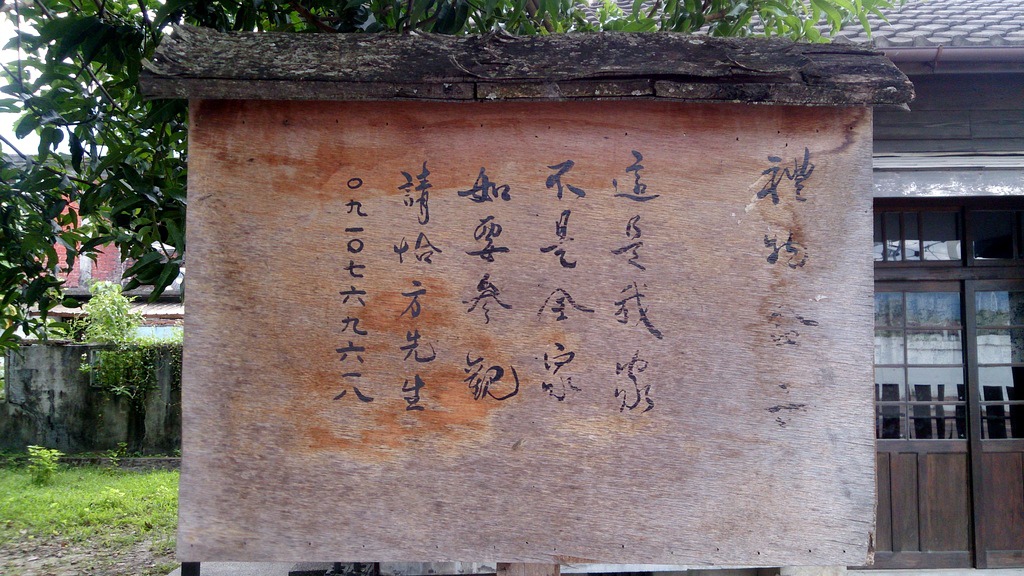 禮物
這是我家
不是全家
如要參觀
請恰方先生
〇九一〇七六九六一八